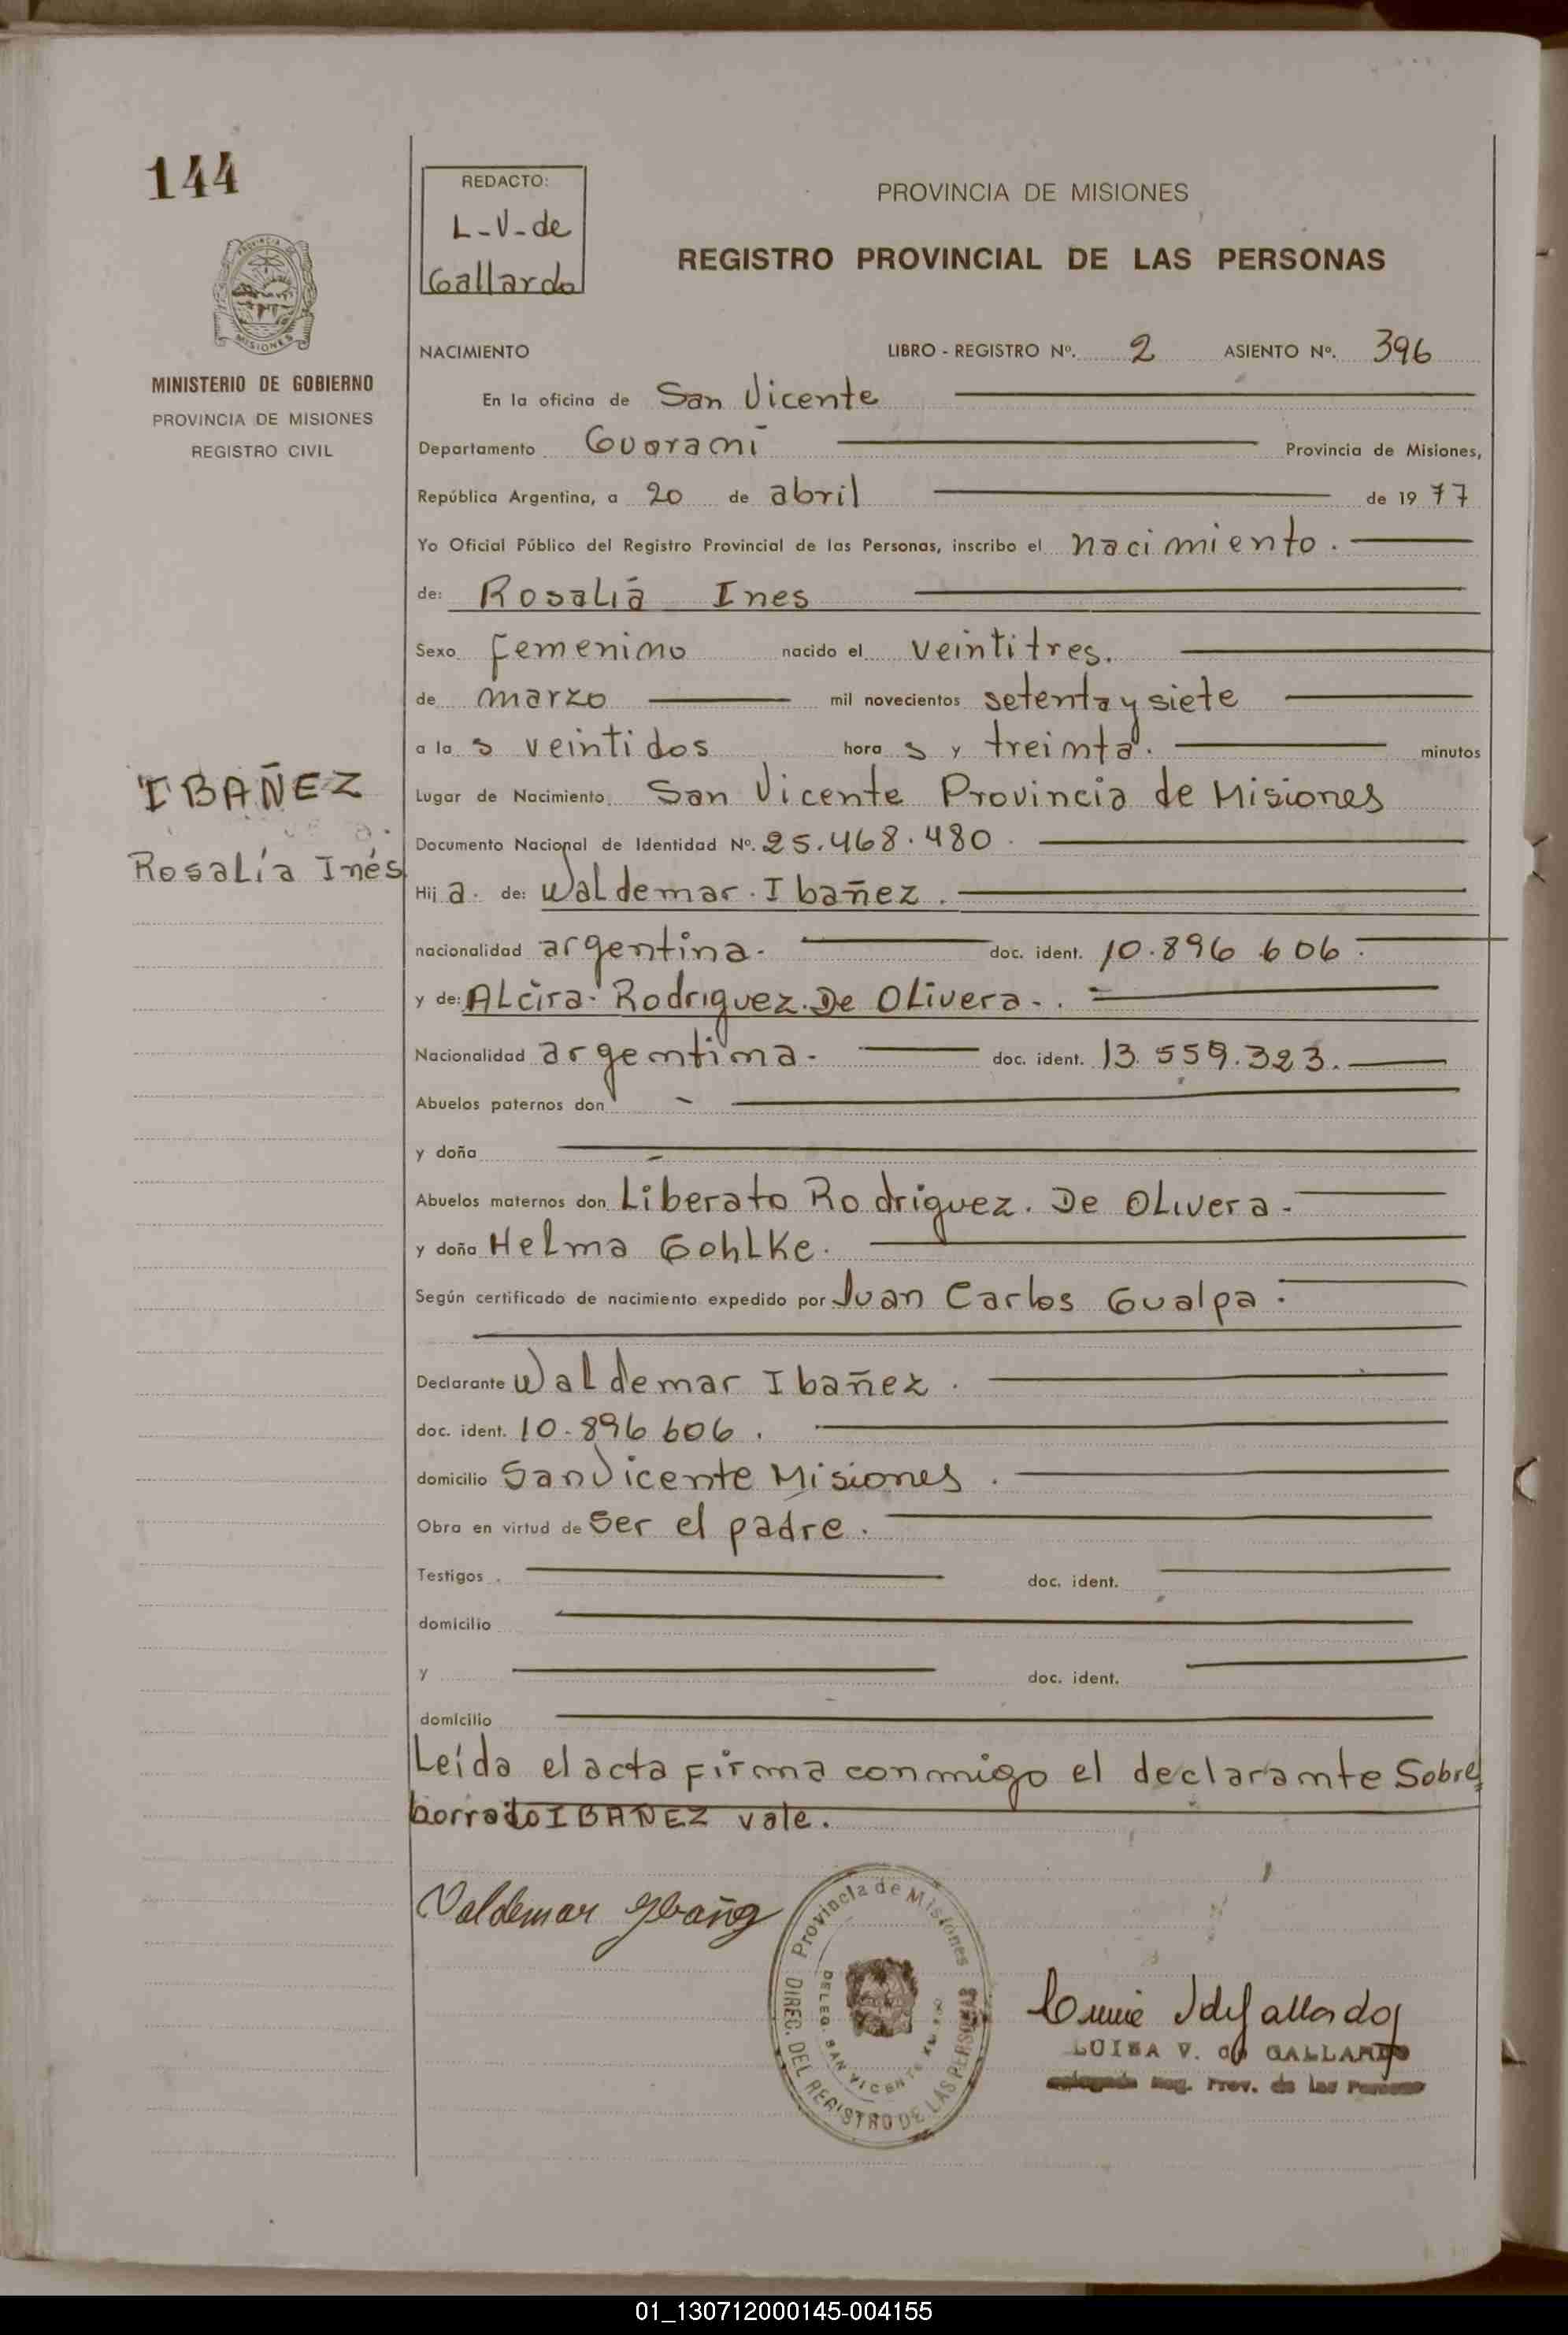 144
REDACTO:
L-V-de
Gallardo
PROVINCIA DE MISIONES
REGISTRO PROVINCIAL DE LAS PERSONAS
MISIONES
MINISTERIO DE GOBIERNO
PROVINCIA DE MISIONES
REGISTRO CIVIL
NACIMIENTO LIBRO - REGISTRO Nº. 2 ASIENTO Nº. 396
En la oficina de San Vicente
Departamento Guarami Provincia de Misiones,
República Argentina, a 20 de abril de 19 77
Yo Oficial Público del Registro Provincial de las Personas, inscribo el nacimiento.
de: Rosalía Ines
Sexo femenino nacido el veintitres.
de marzo mil novecientos setenta y siete
a la s veintidos hora s y treinta. minutos
IBAÑEZ
Rosalía Inés
Lugar de Nacimiento San Vicente Provincia de Misiones
Documento Nacional de Identidad Nº. 25.468.480
Hij a. de: Waldemar. Ibañez.
nacionalidad argentina. doc. ident. 10.896.606.
y de: Alcira Rodriguez. De Olivera-.
Nacionalidad argentina- doc. ident. 13.559.323.
Abuelos paternos don
y doña
Abuelos maternos don Liberato Rodriguez. De Olivera-
y doña Helma Gohlke.
Según certificado de nacimiento expedido por Juan Carlos Gualpa.
Declarante Waldemar Ibañez.
doc. ident. 10-896 606.
domicilio San Vicente Misiones.
Obra en virtud de Ser el padre.
Testigos doc. ident.
domicilio
y doc. ident.
domicilio
Leída el acta firma conmigo el declarante Sobre
borrado IBAÑEZ vale.
Valdemar Ybañez
Provincia de Misiones
DIREC. DEL REGISTRO DE LAS PERSONAS
DELEG. SAN VICENTE
LUISA V. de GALLARDO
Reg. Prov. de las Personas
01_130712000145-004155